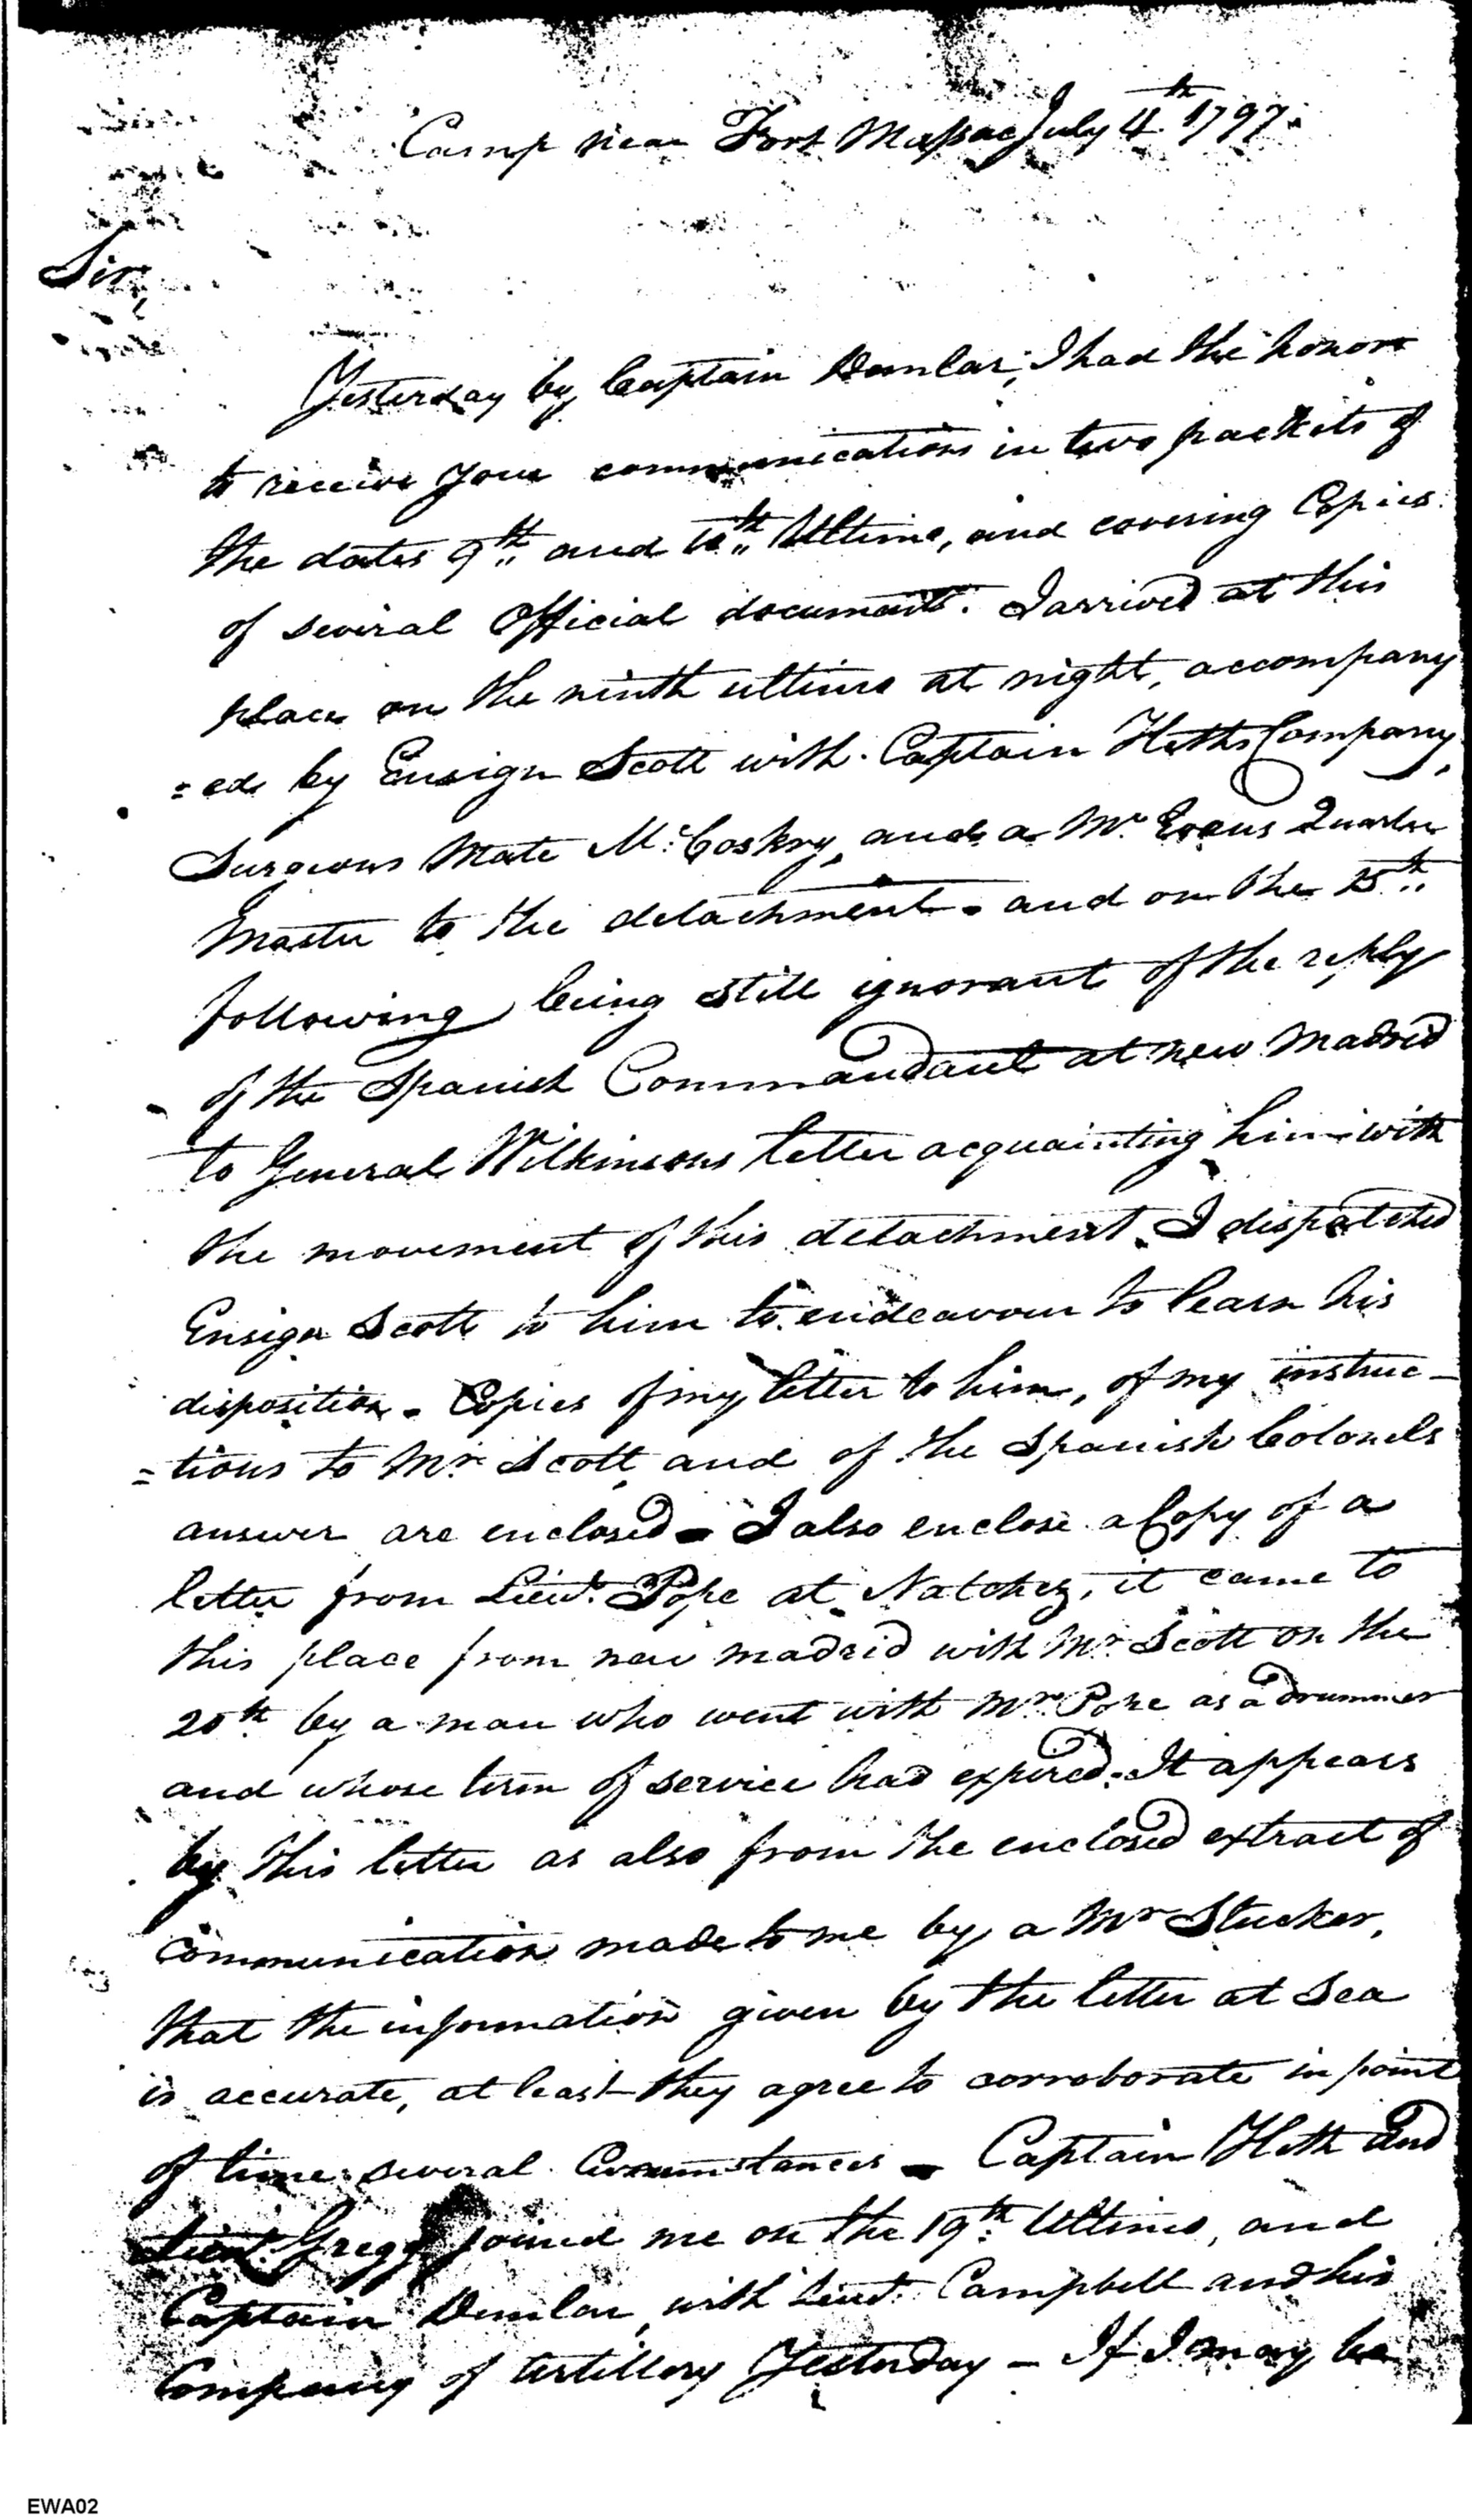 Camp near Fort Massac July 4th 1797.
Sir,
Yesterday by Captain Demlar, I had the honor
to receive your communications in two packets of
the dates 9th and 10th Ultimo, and covering Copies
of several Official documents. I arrived at this
place on the ninth ultimo at night, accompany
=ed by Ensign Scott with Captain Heths Company,
Surgeons Mate McCoskry, and a Mr. Evans Quarter
Master to the detachment - and on the 15th
following being still ignorant of the reply
of the Spanish Commandant at new Madrid
to General Wilkinsons letter acquainting him with
the movement of this detachment, I dispatched
Ensign Scott to him to endeavour to learn his
disposition - Copies of my letter to him, of my instruc-
=tions to Mr. Scott, and of the Spanish Colonels
answer are enclosed - I also enclose a Copy of a
letter from Lieut. Pope at Natchez, it came to
this place from new madrid with Mr. Scott on the
20th by a man who went with Mr. Pope as a drummer
and whose term of service had expired. It appears
by this letter as also from the enclosed extract of
communication made to me by a Mr Stucker,
that the information given by the letter at Sea
is accurate, at least they agree to corroborate in point
of time several Circumstances - Captain Heth and
Lieut. Gregg joined me on the 19th Ultimo, and
Captain Demlar, with Lieut. Campbell and his
Company of Artillery Yesterday - If I may be
EWA02